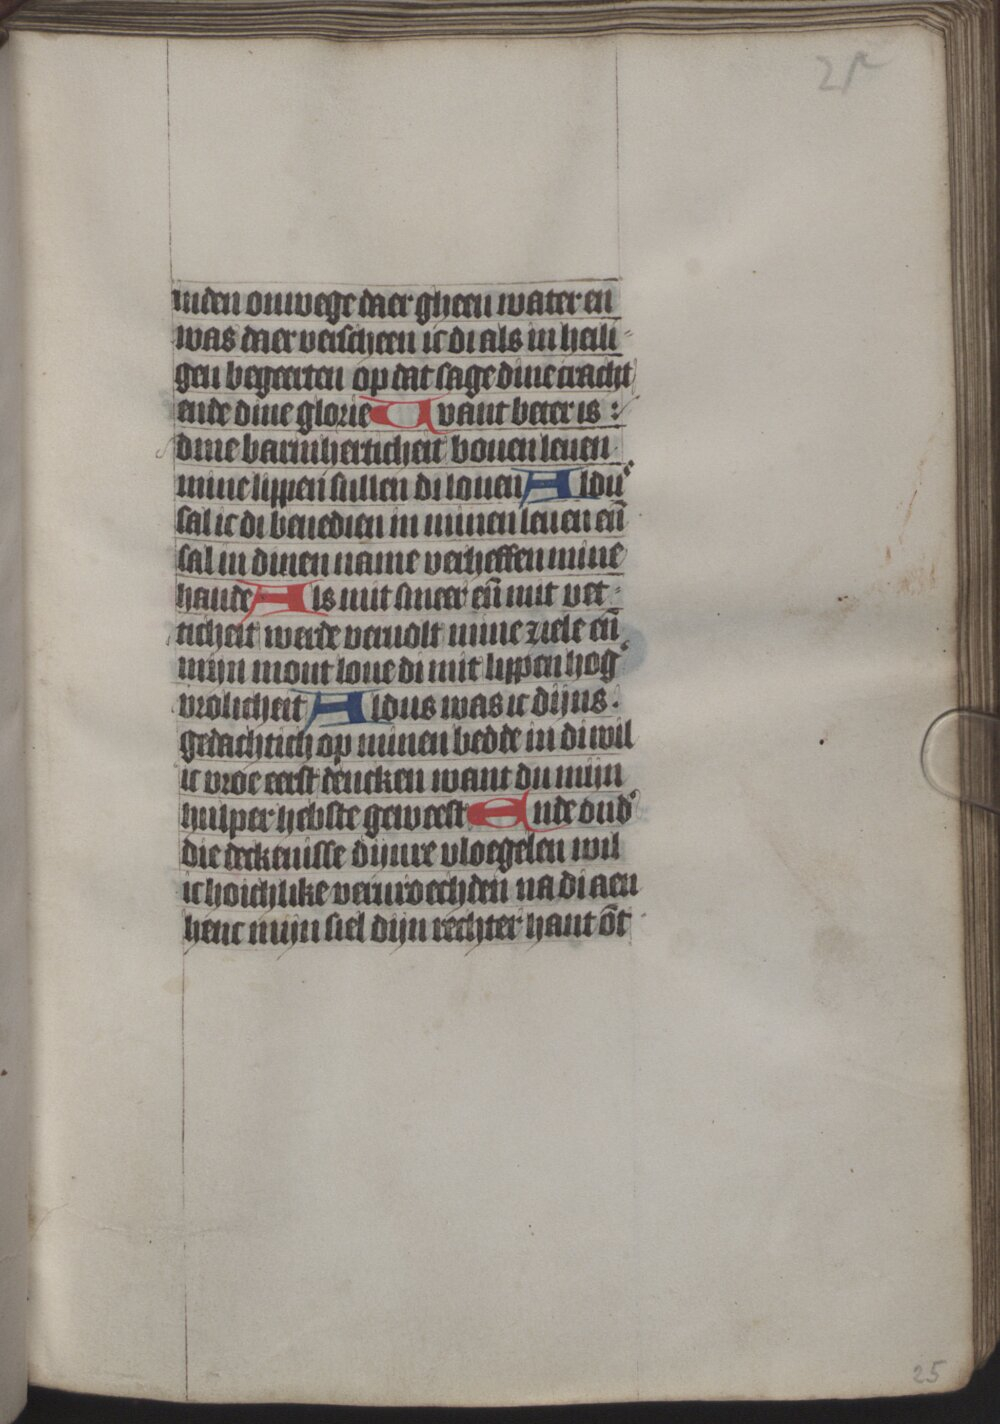 25
inden onwege daer gheen water en
was daer verscheen ic di als in heili
gen begeerten op dat sage dine cracht
ende dine glorie Want beter is :
dine barmherticheit bouen leuen
mine lippen sullen di louen Aldus
sal ic di benedien in minen leuen eñ
sal in dinen name verheffen mine
hande Als mit smeer eñ mit vet
ticheit werde veruolt mine ziele eñ
mijn mont loue di mit lippen hog'
vrolicheit Aldus was ic dijns
gedachtich op minen bedde in di wil
ic vroe eerst dencken want du mijn
hulper hebste geweest Ende ond'
die deckenisse dijnre vloegelen wil
ic hoichlike vervroechden na di aen
henc mijn siel dijn rechter hant ōt
25